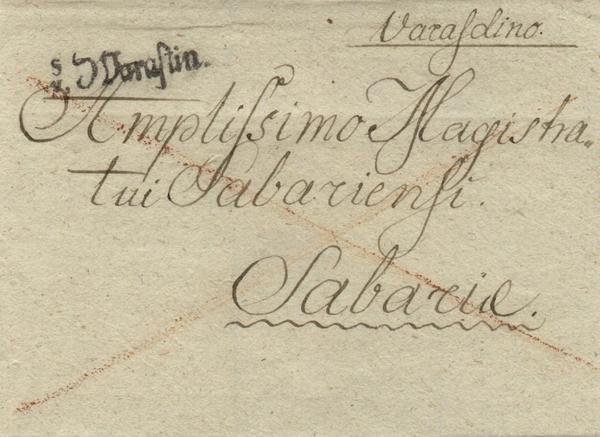 Varasdino.
Varastin.
Amplissimo Magistra„
tui Sabariensi.
Sabariæ.